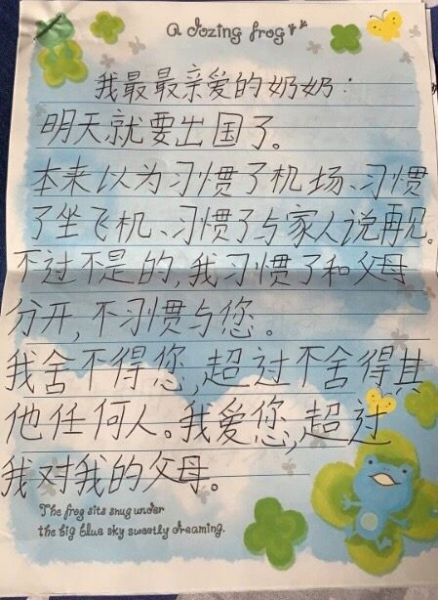 a dozing frog
我最最亲爱的奶奶：
明天就要出国了。
本来以为习惯了机场、习惯
了坐飞机、习惯了与家人说再见。
不过不是的，我习惯了和父母
分开，不习惯与您。
我舍不得您，超过不舍得其
他任何人。我爱您，超过
我对我的父母。
The frog sits snug under
the big blue sky sweetly dreaming.